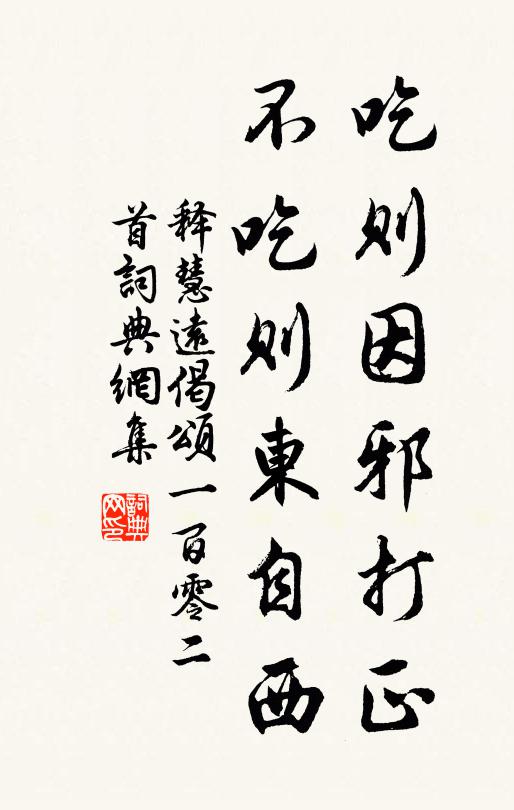 吃則因邪打正
不吃則東自西
釋慧遠偈頌一百零二
首詞典網集
詞典
网印